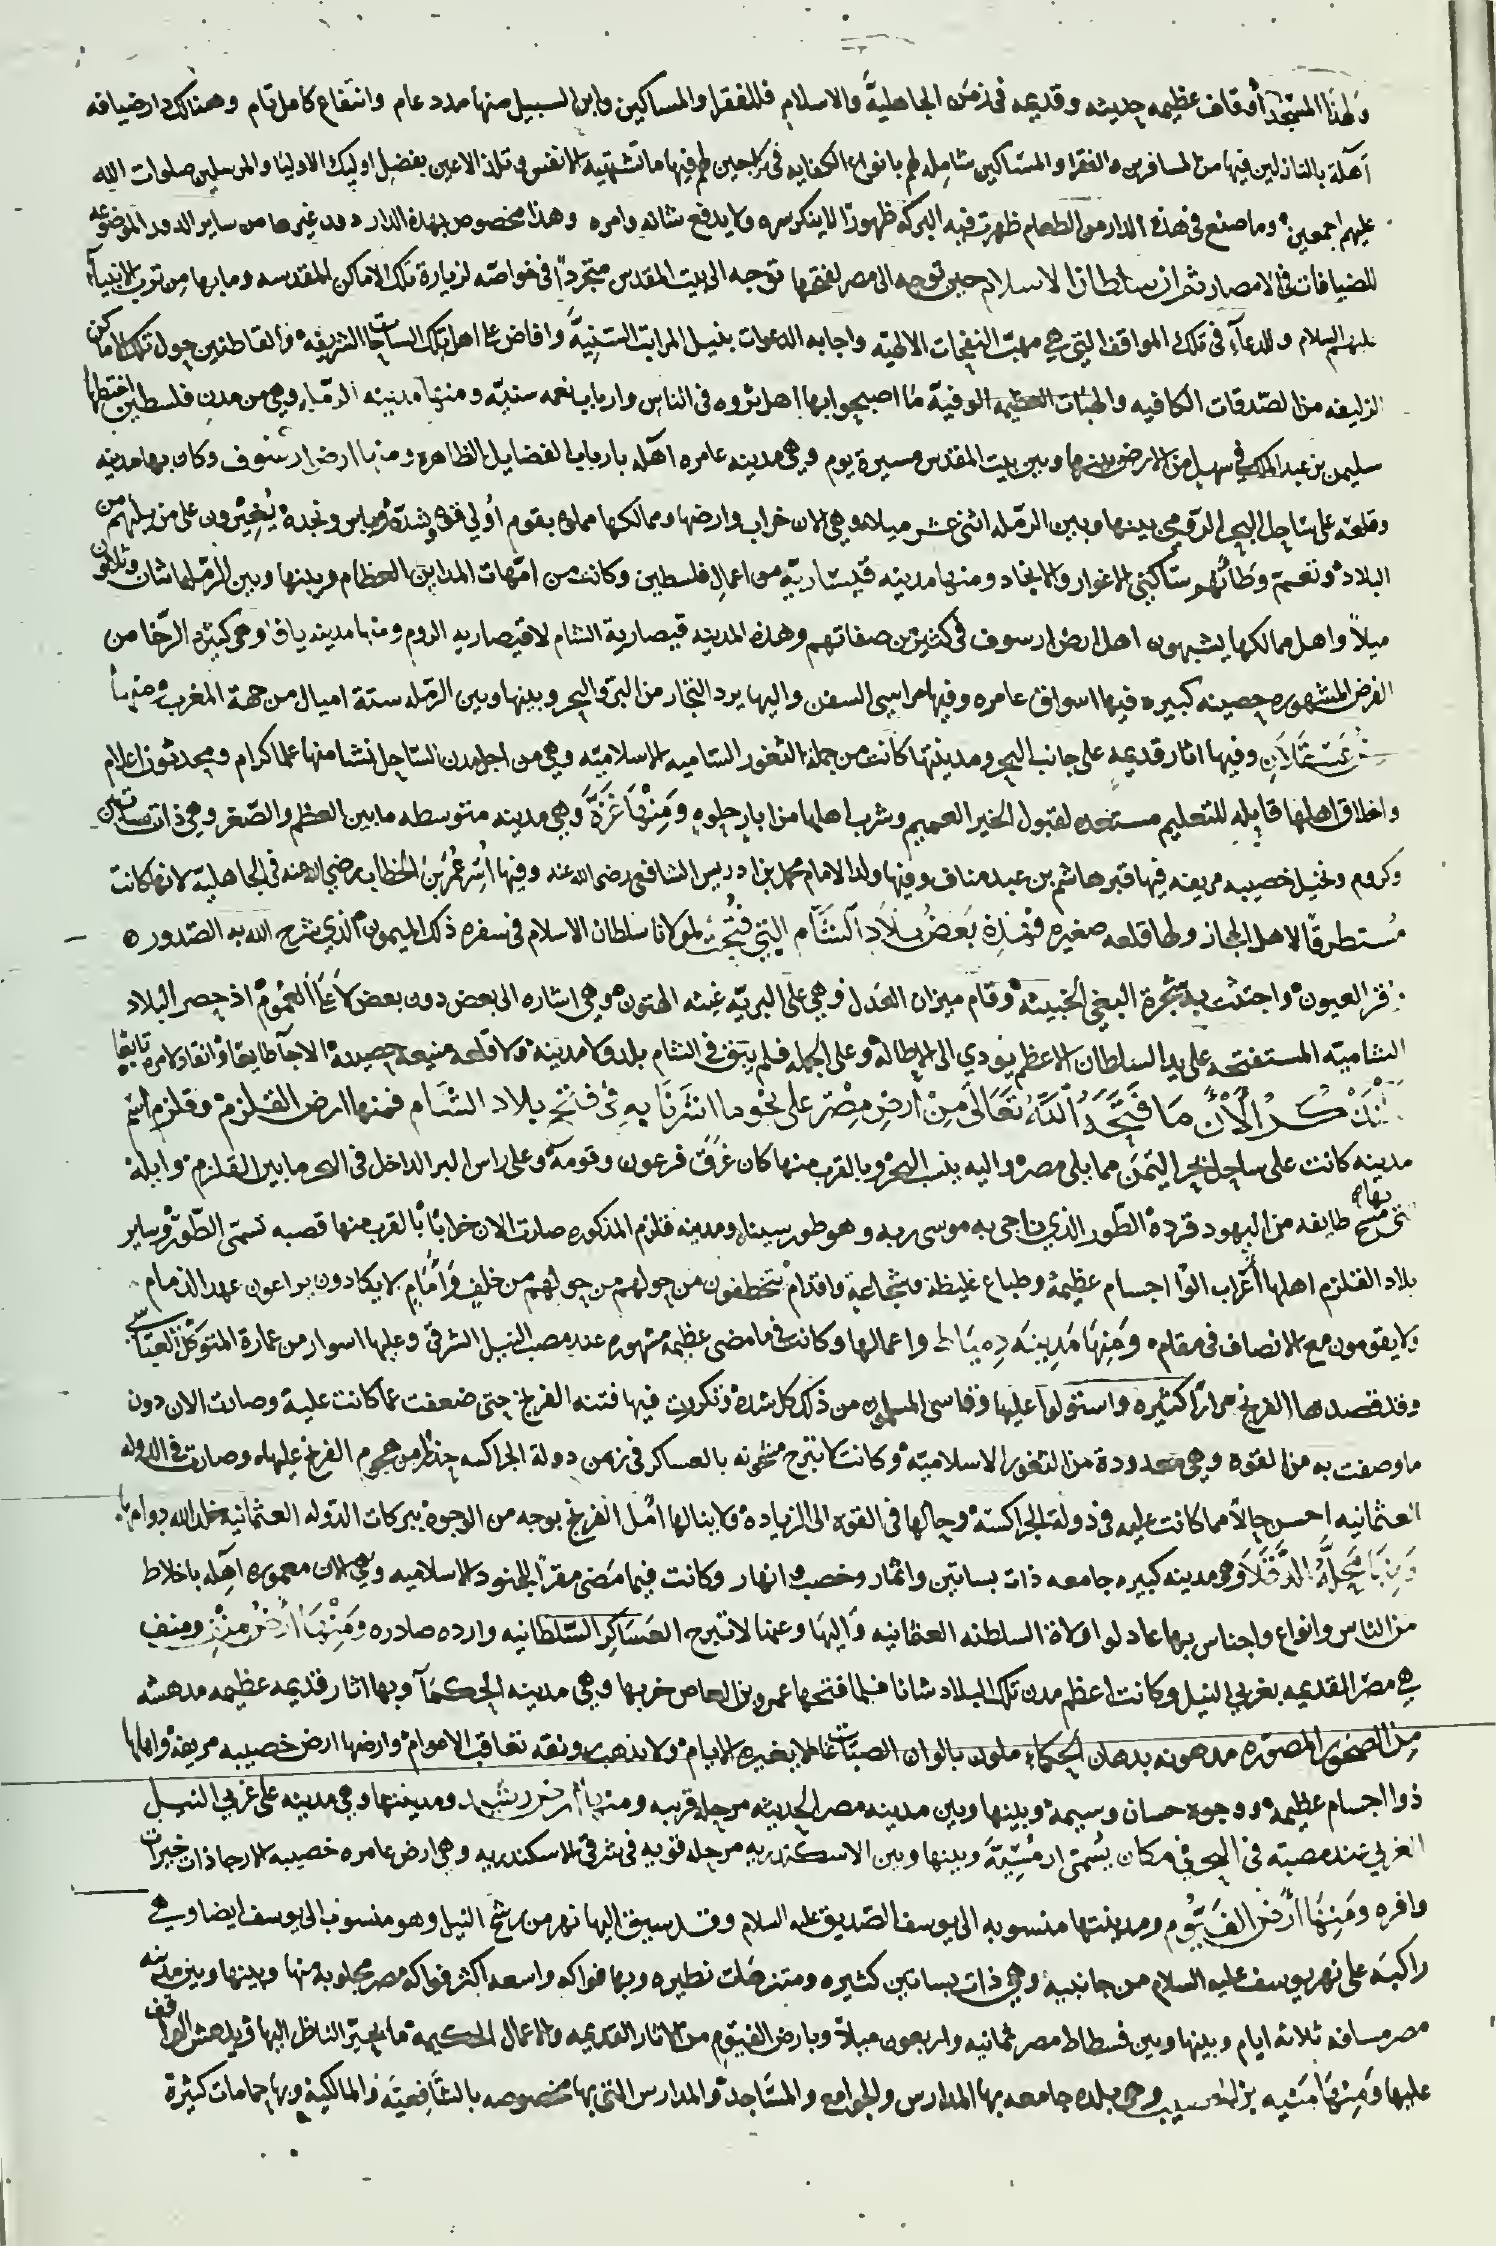 ولهذا المسجد أوقاف عظيمه حديثه وقديمه في زمن الجاهلية والاسلام فللفقرا والمساكين وابن السبيل منها مدد عام وانتفاع كامل تام وهنالك دار ضيافه
آهلة بالنازلين فيها من المسافرين والفقرا والمساكين شامله لهم بانواع الكفايه في كل حين لهم فيها ما تشتهيه الانفس وتلذ الاعين بفضل اوليك الاوليا والمرسلين صلوات الله
عليهم اجمعين وما صنع في هذه الدار من الطعام ظهرت فيه البركه ظهورًا لا ينكر سره ولا يدفع شانه وامره وهذا مخصوص بهذه الدار دون غيرها من ساير الدور الموضوعه
للضيافات في الامصار ثم ان سلطان الاسلام حين توجه الى مصر لفتحها توجه الى بيت المقدس متجردًا في خواصه لزيارة تلك الاماكن المقدسه وما بها من ترب الانبياء
عليهم السلام وللدعاء في تلك المواقف التي هي مهبّ النفحات الالهيه واجابه الدعوات بنيل المراتب السنيّة وافاض على اهل تلك الساحات الشريفه والقاطنين حول تلك الاماكن
الزليفه من الصدقات الكافيه والهبات العظيمه الوفيّة ما اصبحوا بها اهل ثروه في الناس وارباب نعمه سنيّه ومنها مدينه الرمله وهي من مدن فلسطين اختطها
سليمن بن عبد الملك في سهل من الارض بينها وبين بيت المقدس مسيرة يوم وهي مدينه عامره آهله بارباب الفضايل الظاهره ومنها ارض ارسوف وكان بها مدينه
وقلعه على ساحل البحر الرومي بينها وبين الرمله اثنى عشر ميلا وهي الان خراب وارضها وممالكها مملوه بقوم أولي قوه وشدّة وباس ونجدة يُغيرون على من يليهم من
البلاد وتعم وطأتهم ساكني الاغوار والانجاد ومنها مدينه قيساريّه من اعمال فلسطين وكانت من امّهات المداين العظام وبينها وبين الرمله اثنان وثلاثون
ميلاً واهل ممالكها يشبهون اهل ارض ارسوف في كثير من صفاتهم وهذه المدينه قيصارية الشام لا قيصاريه الروم ومنها مدينه يافا وهي كثيرة الرخا من
الفرض المشهوره حصينه كبيره فيها اسواق عامره وفيها مراسي السفن واليها يرد التجار من البر والبحر وبينها وبين الرمله ستة اميال من جهة المغرب ومنها
عسقلان وفيها اثار قديمه على جانب البحر ومدينتها كانت من جملة الثغور الساميه الاسلاميّه وهي من اجل مدن الساحل نشا منها علما كرام ومحدثون اعلام
واخلاق اهلها قابله للتعليم مستعده لقبول الخير العميم وشرب اهلها من ابار حلوه ومنها غزّة وهي مدينه متوسطه ما بين العظم والصغر وهي ذات بساتين
وكروم ونخيل خصيبه مريعه فيها قبر هاشم بن عبد مناف وفيها ولد الامام محمد بن ادريس الشافعي رضي الله عنه وفيها أسر عمر بن الخطاب رضي الله عنه في الجاهلية لانها كانت
مُستطرقًا لاهل الحجاز ولها قلعه صغيره فهذه بعض بلاد الشام التي فُتحت لمولانا سلطان الاسلام في سفره ذلك الميمون الذي شرح الله به الصدور
واقر العيون واجتثت به شجرة البغي الخبيثه وقام ميزان العدل فهي على البريّه غيثه الهتون وهي اشاره الى بعض دون بعض لا على العموم اذ حصر البلاد
الشاميّه المستفتحه على يد السلطان الاعظم يودي الى الاطالة وعلى الجمله فلم يبق في الشام بلد ولا مدينة ولا قلعه منيعه حصينة الا جآ طايعًا وانقاد لامره تابعًا
ولنذكر الآن ما فتحه الله تعالى من أرض مصر على نحو ما اشرنا به في فتح بلاد الشام فمنها ارض القلزم وقلزم اسم
مدينه كانت على ساحل بحر اليمن مما يلي مصر واليه ينسب البحر وبالقرب منها كان غرق فرعون وقومه وعلى راس البر الداخل في البحر ما بين القلزم وايلة
التي مسخ بها طايفه من اليهود قردة الطور الذي ناجى به موسى ربه وهو طور سيناء ومدينه قلزم المذكوره صارت الان خرابًا بالقرب منها قصبه تسمّى الطور وساير
بلاد القلزم اهلها أعراب الوا اجسام عظيمة وطباع غليظه وشجاعة واقدام يتخطفون من حولهم من حولهم من خلف وأمام لا يكادون يراعون عهد الذمام
ولا يقومون مع الانصاف في مقام ومنها مدينه دمياط واعمالها وكانت فيما مضى عظيمه مشهوره عند مصب النيل الشرقي وعليها اسوار من عمارة المتوكل العباسي
وقد قصدها الفرنج مرارًا كثيره واستولوا عليها وقاسى المسلمون من ذلك كل شده وتكررت فيها فتنه الفرنج حتى ضعفت عما كانت عليه وصارت الان دون
ما وصفت به من القوه وهي معدودة من الثغور الاسلاميّه وكانت لا تبرح مشحونه بالعساكر في زمن دولة الجراكسه حذرًا من هجوم الفرنج عليها وصارت في الدوله
العثمانيه احسن حالاً مما كانت عليه في دولة الجراكسة وحالها في القوه الى الزيادة ولا ينالها امل الفرنج بوجه من الوجوه ببركات الدوله العثمانيه خلد الله دوامها
ومنها محلة الدقلا وهي مدينه كبيره جامعه ذات بساتين واثمار وخصب وانهار وكانت فيما مضى مقر الجنود الاسلاميه وهي الان معموره آهله باخلاط
من الناس وانواع واجناس بها عادلوا ولاة السلطنه العثمانيه واليها وعنها لا تبرح العساكر السلطانيه وارده صادره ومنها أرض منف ومنف
هي مصر القديمه بغربي النيل وكانت اعظم مدن تلك البلاد شانا فلما فتحها عمرو بن العاص خربها وهي مدينه الحكمآ وبها اثار قديمه عظيمه مدهشه
من الصخور المصوّره مدهونه بدهان الحكماء ملون بالوان الصباغات لا يغيره الايام ولا يذهب رونقه تعاقب الاعوام وارضها ارض خصيبه مريعه واهلها
ذوا اجسام عظيمة ووجوه حسان وسيمة وبينها وبين مدينه مصر الحديثه مرحله قريبه ومنها أرض رشيد ومدينتها وهي مدينه على غربي النيل
الغربي عند مصبّه في البحر في مكان يُسمّى ارمُسيّة وبينها وبين الاسكندريه مرحله قويه في شرقي الاسكندريه وهي ارض عامره خصيبه الارجا ذات خيرات
وافره ومنها أرض الفيّوم ومدينتها منسوبه الى يوسف الصّديق عليه السلام وقد سيق اليها نهر من رشح النيل وهو منسوب الى يوسف ايضا وهي
راكبه على نهر يوسف عليه السلام من جانبيه وهي ذات بساتين كثيره ومتنزهات نظيره وبها فواكه واسعه اكثر فواكه مصر مجلوبه منها وبينها وبين مدينه
مصر مسافه ثلاثه ايام وبينها وبين فسطاط مصر ثمانيه واربعون ميلاً وبارض الفيّوم من الاثار القديمه والاعمال الحكيمه ما يحيّر الناظر اليها ويدهش الواقف
عليها ومنها منيه بن الخصيب وهي بلده جامعه بها المدارس والجوامع والمساجد والمدارس التي بها مخصوصه بالشافعيّة والمالكية وبها حمامات كثيرة